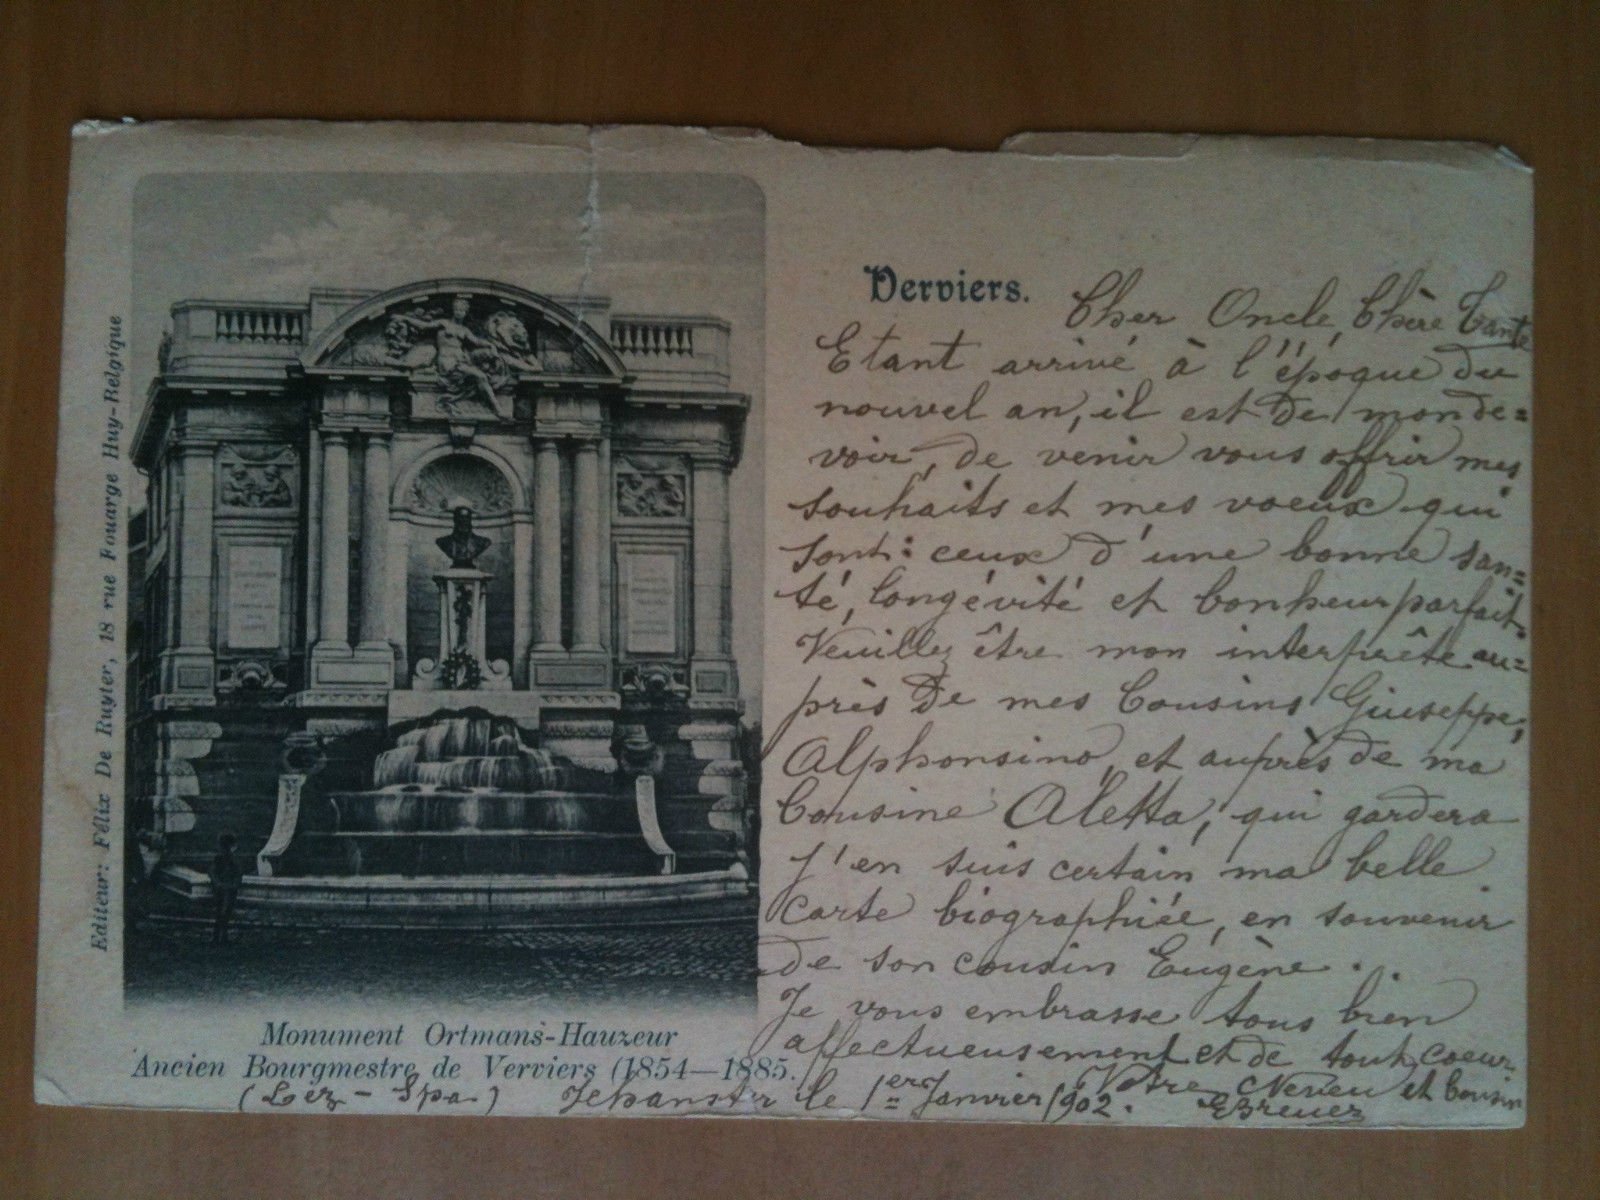 Editeur: Félix De Ruyter, 18 rue Fouarge Huy-Belgique
Verviers.
Cher Oncle, Chère Tante
Etant arrivé à l'époque du
nouvel an, il est de mon de=
voir, de venir vous offrir mes
souhaits et mes voeux qui
sont: ceux d'une bonne san=
té, longévité et bonheur parfait.
Veuillez être mon interprête au=
près de mes Cousins Giuseppe,
Alphonsino, et auprès de ma
Cousine Aletta, qui gardera
j'en suis certain ma belle
carte biographiée, en souvenir
de son cousin Eugène.
Je vous embrasse tous bien
affectueusement et de tout coeur
Votre Neveu et Cousin
EBreuer
Monument Ortmans-Hauzeur
Ancien Bourgmestre de Verviers (1854—1885.
(Lez-Spa.) Jehanster le 1er Janvier 1902.